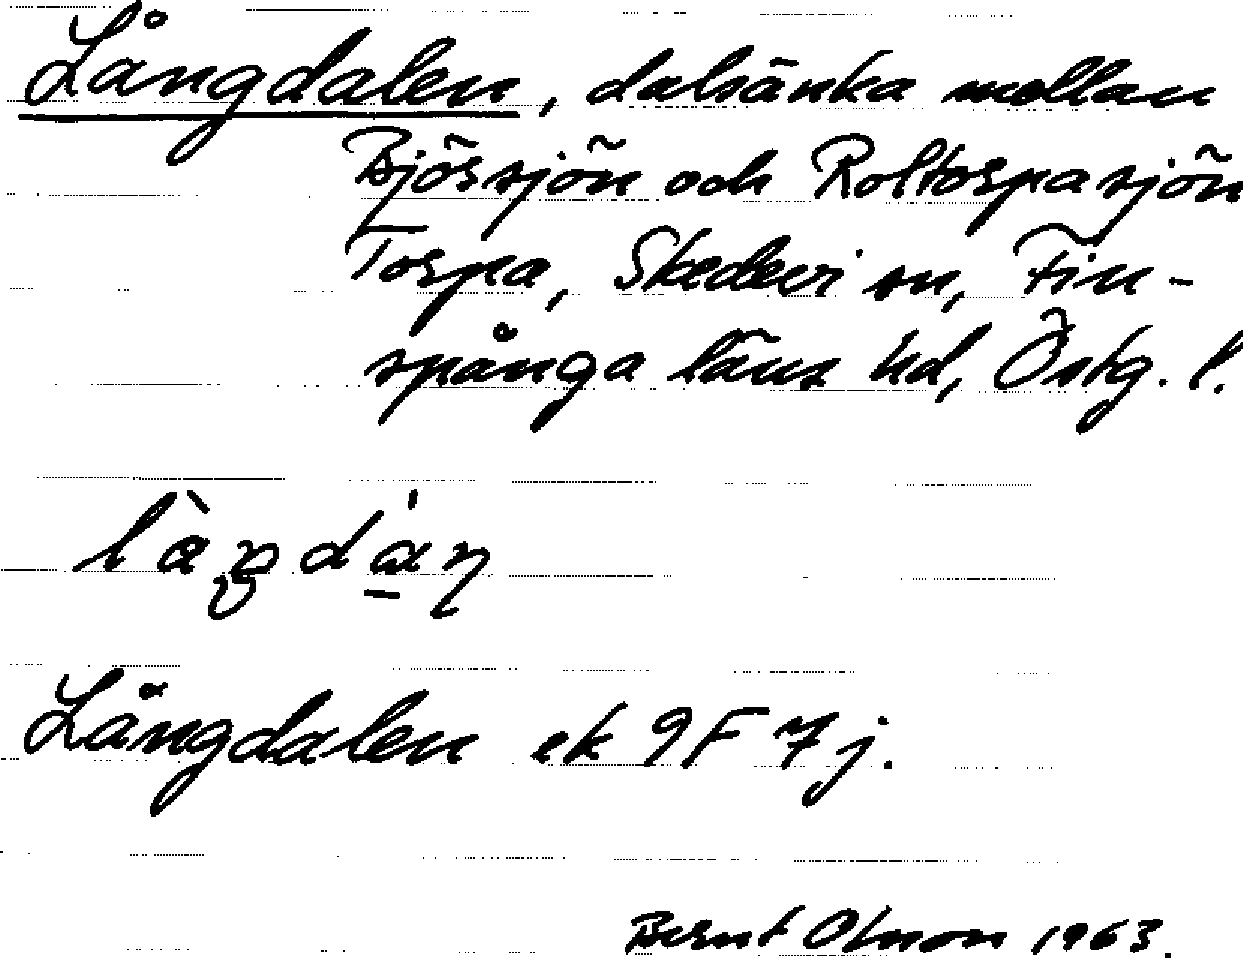 Långdalen, dalsänka mellan
Björssjön och Roltorspasjön
Torspa, Skedevi sn, Fin-
spånga läns hd, Östg. l.
Långdalen ek 9F 7j.
Bernt Olsson 1963.